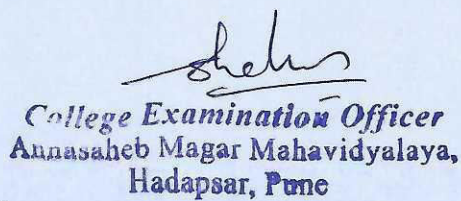 College Examination Officer
Annasaheb Magar Mahavidyalaya,
Hadapsar, Pune